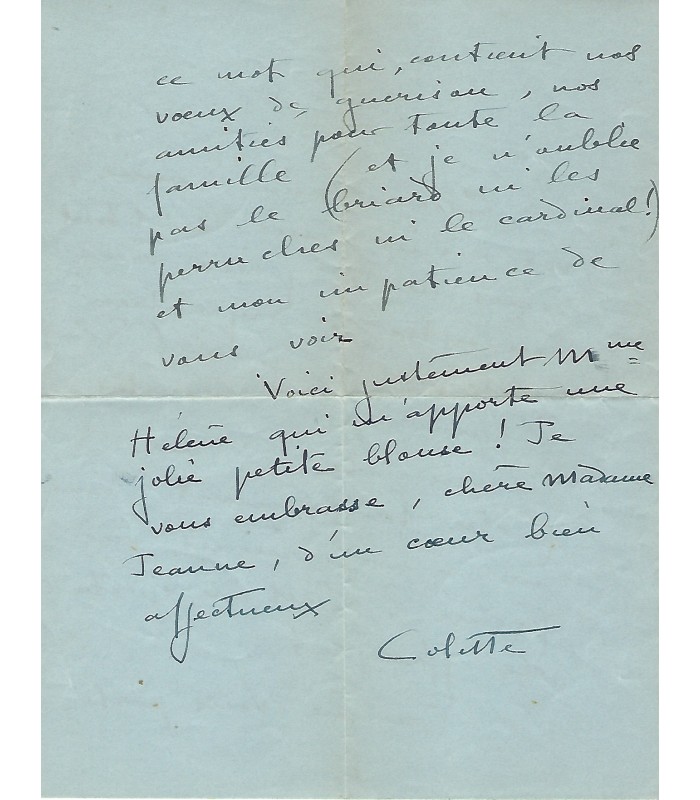 ce mot qui, contient nos
vœux de guérison, nos
amitiés pour toute la
famille (et je n'oublie
pas le briard ni les
perruches ni le cardinal!)
et mon impatience de
vous voir
Voici justement Mme
Hélène qui m'apporte une
jolie petite blouse! Je
vous embrasse, chère Madame
Jeanne, d'un cœur bien
affectueux
Colette